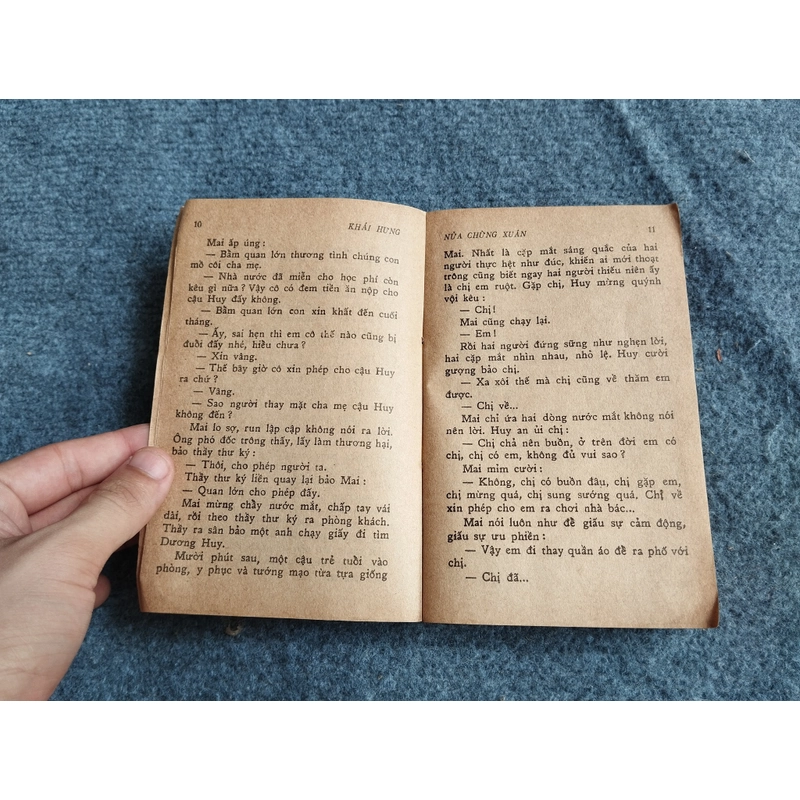 10
KHÁI HƯNG
Mai ấp úng :
— Bẩm quan lớn thương tình chúng con
mồ côi cha mẹ.
— Nhà nước đã miễn cho học phí còn
kêu gì nữa ? Vậy cô có đem tiền ăn nộp cho
cậu Huy đấy không.
— Bẩm quan lớn con xin khất đến cuối
tháng.
— Ấy, sai hẹn thì em cô thể nào cũng bị
đuổi đấy nhé, hiểu chưa ?
— Xin vâng.
— Thế bây giờ có xin phép cho cậu Huy
ra chứ ?
— Vâng.
— Sao người thay mặt cha mẹ cậu Huy
không đến ?
Mai lo sợ, run lập cập không nói ra lời.
Ông phó đốc trông thấy, lấy làm thương hại,
bảo thầy thư ký :
— Thôi, cho phép người ta.
Thầy thư ký liền quay lại bảo Mai :
— Quan lớn cho phép đấy.
Mai mừng chảy nước mắt, chấp tay vái
dài, rồi theo thầy thư ký ra phòng khách.
Thầy ra sân bảo một anh chạy giấy đi tìm
Dương Huy.
Mười phút sau, một cậu trẻ tuổi vào
phòng, y phục và tướng mạo từa tựa giống
NỬA CHỪNG XUÂN
11
Mai. Nhất là cặp mắt sáng quắc của hai
người thực hệt như đúc, khiến ai mới thoạt
trông cũng biết ngay hai người thiếu niên ấy
là chị em ruột. Gặp chị, Huy mừng quýnh
vội kêu :
— Chị !
Mai cũng chạy lại.
— Em !
Rồi hai người đứng sững như nghẹn lời,
hai cặp mắt nhìn nhau, nhỏ lệ. Huy cười
gượng bảo chị.
— Xa xôi thế mà chị cũng về thăm em
được.
— Chị về...
Mai chỉ ứa hai dòng nước mắt không nói
nên lời. Huy an ủi chị :
— Chị chả nên buồn, ở trên đời em có
chị, chị có em, không đủ vui sao ?
Mai mỉm cười :
— Không, chị có buồn đâu, chị gặp em,
chị mừng quá, chị sung sướng quá. Chị về
xin phép cho em ra chơi nhà bác...
Mai nói luôn như để giấu sự cảm động,
giấu sự ưu phiền :
— Vậy em đi thay quần áo để ra phố với
chị.
— Chị đã...